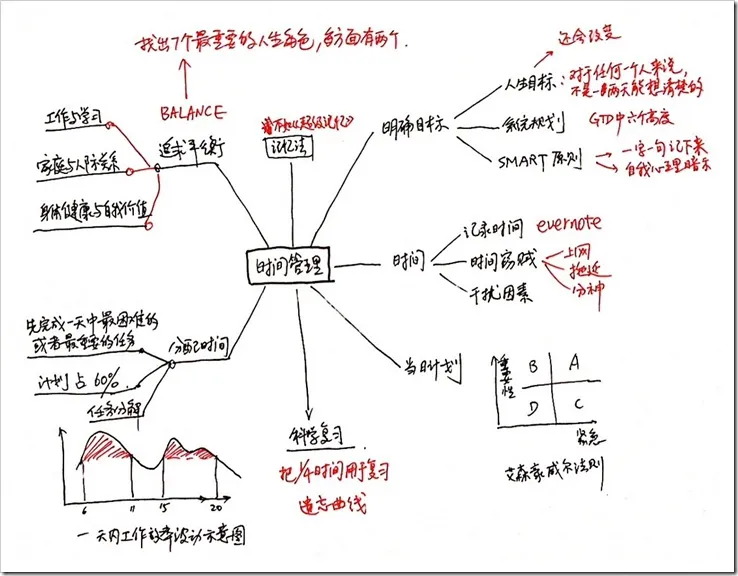 找出7个最重要的人生角色,每方面有两个.
BALANCE
追求平衡
工作与学习
家庭与人际关系
身体健康与自我价值
曾不如《超级记忆》
记忆法
还会改变
明确目标
人生目标:对于任何一个人来说,
不是一两天能想清楚的
系统规划 GTD中六个高度
SMART 原则
一字一句记下来
自我心理暗示
时间管理
时间
记录时间 evernote
时间窃贼
上网
拖延
分神
干扰因素
分配时间
先完成一天中最困难的
或者最重要的任务
计划占60%.
任务分解
当日计划
重要性
B A
D C
紧急
艾森豪威尔法则
科学复习
把1/4时间用于复习
遗忘曲线
6 11 15 20
一天内工作效率波动示意图